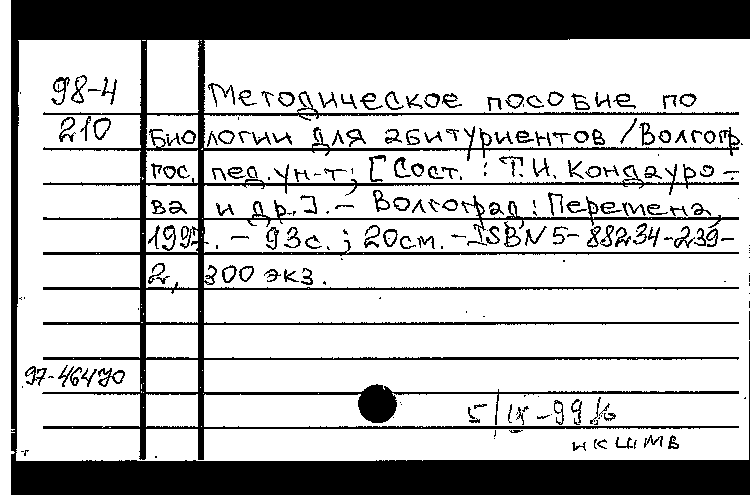 98-4 Методическое пособие по
210 биологии для абитуриентов / Волгогр.
гос. пед. ун-т; [Сост.: Т.И. Кондауро-
ва и др.]. - Волгоград: Перемена,
1997. - 93с.; 20см. - ISBN 5-88234-239-
2, 300 экз.
97-46470
5/IX-99